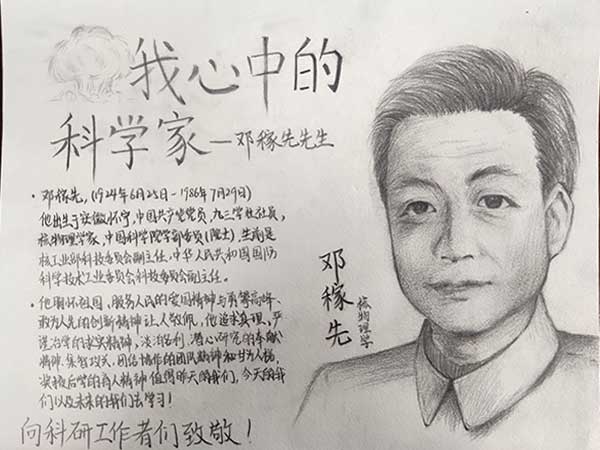 我心中的
科学家—邓稼先先生
·邓稼先，(1924年6月25日-1986年7月29日)
他出生于安徽怀宁，中国共产党党员，九三学社社员，
核物理学家，中国科学院学部委员(院士)，生前是
核工业部科技委员会副主任，中华人民共和国国防
科学技术工业委员会科技委员会副主任。
·他胸怀祖国，服务人民的爱国精神与勇攀高峰、
敢为人先的创新精神让人敬佩，他追求真理，严
谨治学的求实精神，淡泊名利，潜心研究的奉献
精神，集智攻关，团结协作的团队精神和甘为人梯，
奖掖后学的育人精神值得昨天的我们，今天的我
们以及未来的我们去学习！
向科研工作者们致敬！
邓稼先
核物理学